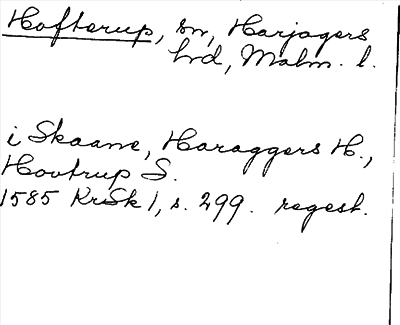 Hofterup, sn, Harjagers
hd, Malm. l.
i Skaane, Haraggers H.,
Hovtrup S.
1585 KrSk 1, s. 299. regest.